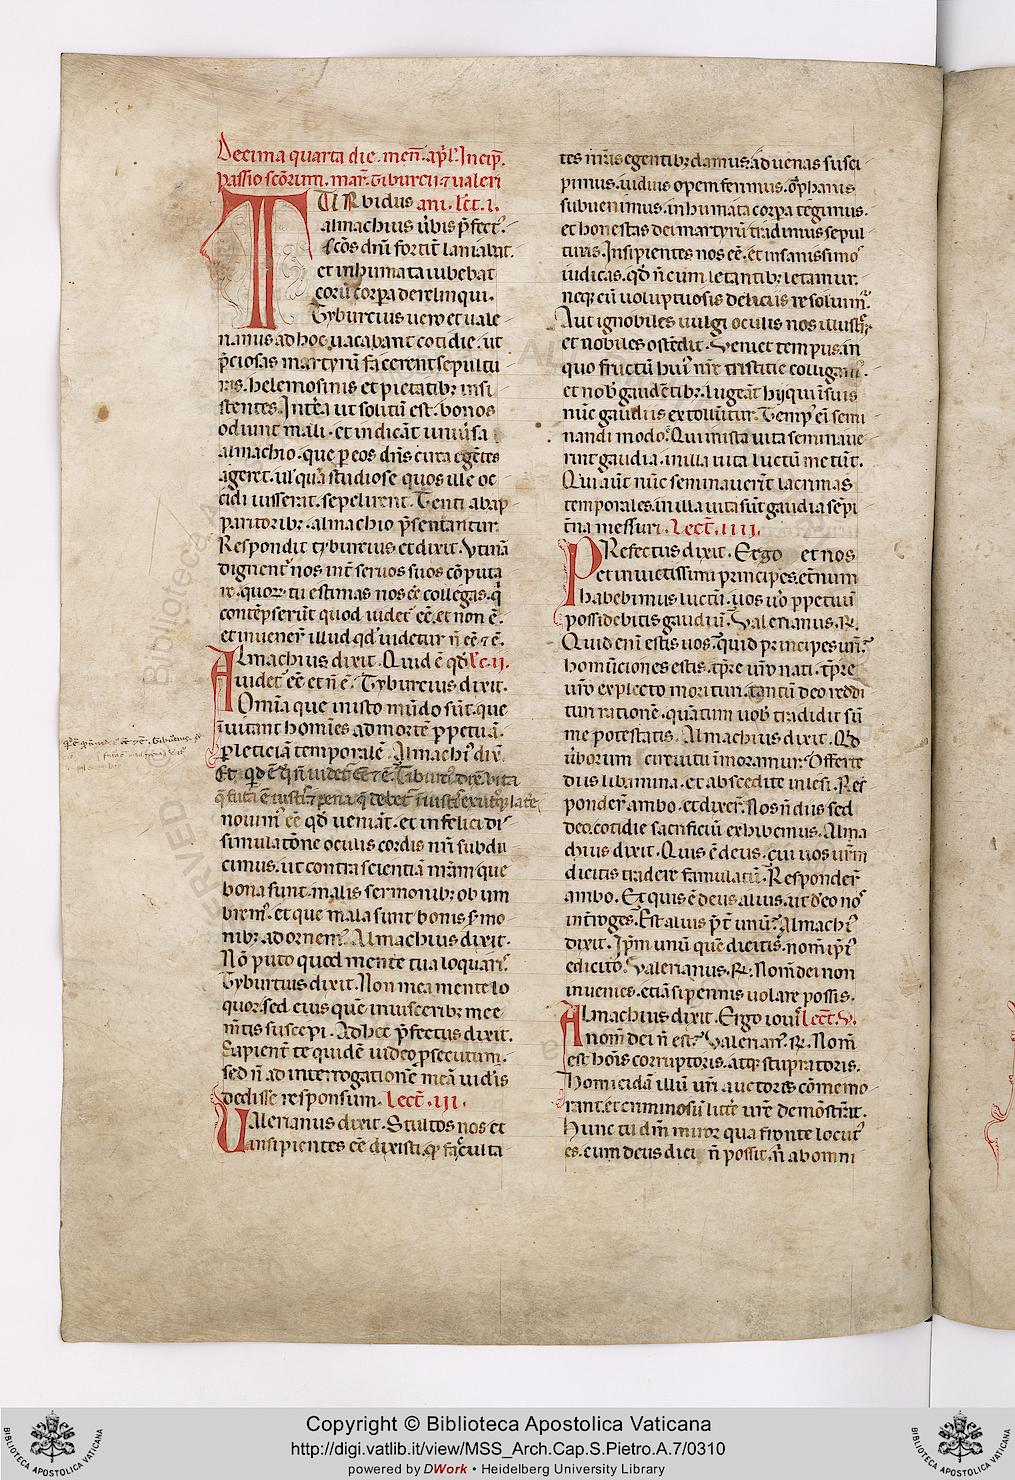 Decima quarta die. men̄. apl̓. Incip̄.
passio sc̄orum. mar̄. tiburcii. ⁊ ualeri
TURbidus ani. lc̄t. i.
almachius urbis p̄fect᾿.
sc̄os dn̄i fortit̄ laniabat.
et inhumata iubebat
eorū corpa derelinqui.
Tyburcius uero et uale
rianus ad hoc uacabant cotidie. ut
p̄ciosas martyrū facerent sepultu
ras. helemosinis et pietatibꝫ insi
stentes. Intēa ut solitū est. bonos
odiunt mali. et indicāt uniūsa
almachio. que p eos dn̄s circa egētes
ageret. ul᾿ quā studiose quos ille oc
cidi iusserat. sepelirent. Tenti ab ap
paritoribꝫ. almachio p̄sentantur.
Respondit tyburcius et dixit. Utinā
dignent᾿ nos int̄ seruos suos cōputa
re. quoꝝ tu estimas nos eē collegas. q̄
contēpserunt quod uidet᾿ eē. et non ē.
et inuener̄ illud qd᾿ uidetur n̄ eē ⁊ ē.
Almachius dixit. Quid ē qd̓ lc̄. ii.
uidet᾿ eē et n̄ ē. Tyburcius dixit.
Omīa que in isto mūdo sūt. que
īuitant homīes ad mortē ppetuā.
p leticiā temporalē. Almachi᾿ dix̄.
Et qd ē q̄ n̄ uidet᾿ eē ⁊ ē. Tiburci᾿ dix̄. Uita
nouim᾿ eē qd̓ ueniāt. et infelici di
simulatōne oculis cordis nr̄i subdu
cimus. ut contra scientiā nr̄am que
bona sunt. malis sermonibꝫ ob um
brem᾿. et que mala sunt bonis s̄mo
nibꝫ adornem᾿. Almachius dixit.
Nō puto quod mente tua loquar᾿.
Tyburtius dixit. Non mea mente lo
quor. sed eius quē in uisceribꝫ mee
mēntis suscepi. Ad hec p̄fectus dixit.
Sapient̄ te quidē uideo psecutum.
sed n̄ ad interrogationē meā uid̓is
dedisse responsum. lec̄t. iii.
Ualerianus dixit. Stultos nos et
insipientes eē dixisti. qꝫ facultа
tes nr̄as egentibꝫ damus. aduenas susci
pimus. uiduis opem ferimus. orphanis
subuenimus. inhumata corpa tegimus.
et honestas dei martyrū tradimus sepul
turas. Insipientes nos eē. et insanissimos
iudicas. qd̓ n̄ cum letantibꝫ letamur.
neqꝫ cū uoluptuosis deliciis resoluim᾿.
Aut ignobiles uulgi oculis nos illustr̄
et nobiles ostēdit. Ueniet tempus. in
quo fructū hui᾿ nr̄e tristitie colligam᾿.
et nob᾿ gaudētibꝫ. lugeāt hii qui ī suis
nūc gaudiis extollūtur. Temp᾿ eī semi
nandi modo ē. Qui in ista uita seminaue
rint gaudia. in illa uita luctū metūt.
Qui aūt nūc seminauerīt lacrimas
temporales. in illa uita sūt gaudia sepi
tn̄a messuri. Lec̄t. iiii.
PRefectus dixit. Ergo et nos
et inuictissimi principes. et̄num
habebimus luctū. uos u᾿o ppetuū
possidebitis gaudiū. Ualerianus. ℟.
Quid enī estis uos. ut quid principes ur̄i.
homūciones estis. tpr̄e ur̄o nati. tpr̄e
ur̄o expleto morituri. tantū deo reddi
turi rationē. quātum uob᾿ tradidit sū
me potestatis. Almachius dixit. Qd̓
u᾿borum circuitu īmoramur. Offerte
diis libamina. et abscedite inlesi. Res̄
ponder̄ ambo. et dixer̄. Nos n̄ diis sed
deo. cotidie sacrificiū exhibemus. Alma
chius dixit. Quis ē deus. cui uos ur̄m
dicitis tradere famulatū. Responder̄
ambo. Et quis ē deus alius. ut d᾿eo nos
int̄roges. Est alius p̄t unū. Almachi᾿
dixit. Ip̄m unū quē dicitis. nom̄ ip̄i᾿
edicito. Ualerianus. ℟. Nom̄ dei non
inuenies. etiā si pennis uolare possis.
Almachius dixit. Ergo iouis lec̄t. v.
nom̄ dei n̄ est. Ualerian᾿. ℟. Nom̄
est hoīs corruptoris. atqꝫ stupratoris.
Homicidā illū ur̄i auctores cōmemo
rant. et criminosū litt̄e ur̄e demōstrāt.
Hunc tu dm̄ miror qua fronte locut᾿
es. cum deus dici n̄ possit. n̄ ab omni
Copyright © Biblioteca Apostolica Vaticana
http://digi.vatlib.it/view/MSS_Arch.Cap.S.Pietro.A.7/0310
powered by DWork • Heidelberg University Library
BIBLIOTECA APOSTOLICA VATICANA
BIBLIOTECA APOSTOLICA VATICANA